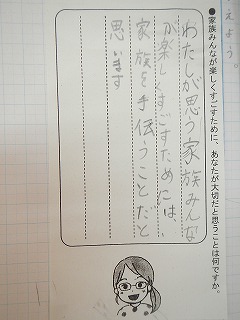 えよう。
●家族みんなが楽しくすごすために、あなたが大切だと思うことは何ですか。
わたしが思う家族みんな
が楽しくすごすためには、
家族を手伝うことだと
思います